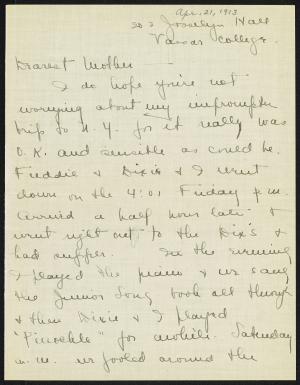 Apr. 21, 1913
Josselyn Hall
Vassar College.
Dearest Mother
I do hope you're not
worrying about my impromptu
trip to N.Y. for it really was
O.K. and sensible as could be.
Freddie & Dixie & I went
down on the 4:01 Friday p.m.
arrived a half hour late &
went right out to the Dix's &
had supper. In the evening
I played the piano & we sang
the Junior Song book all through
& then Dixie & I played
"Pinochle" for awhile. Saturday
a.m. we fooled around the